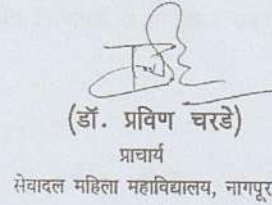 (डॉ. प्रविण चरडे)
प्राचार्य
सेवादल महिला महाविद्यालय, नागपूर